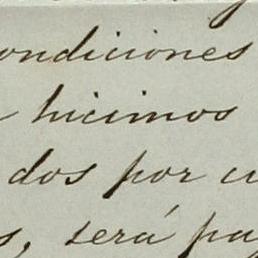 ondiciones
hicimos
dos por
s, será pa